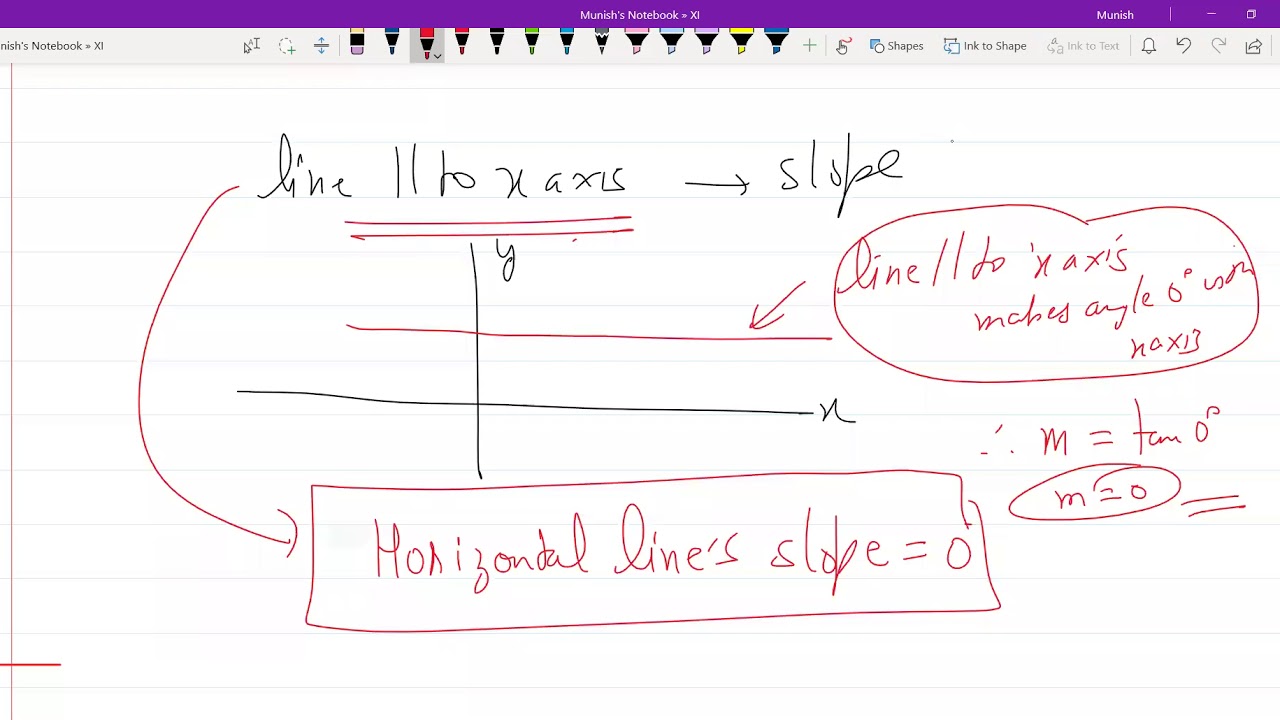 Munish's Notebook » XI
Munish
nish's Notebook » XI
Shapes
Ink to Shape
Ink to Text
line || to x axis → slope
y
line || to x axis
makes angle 0° with
x axis
x
∴ m = tan 0°
m = 0
Horizontal line's slope = 0